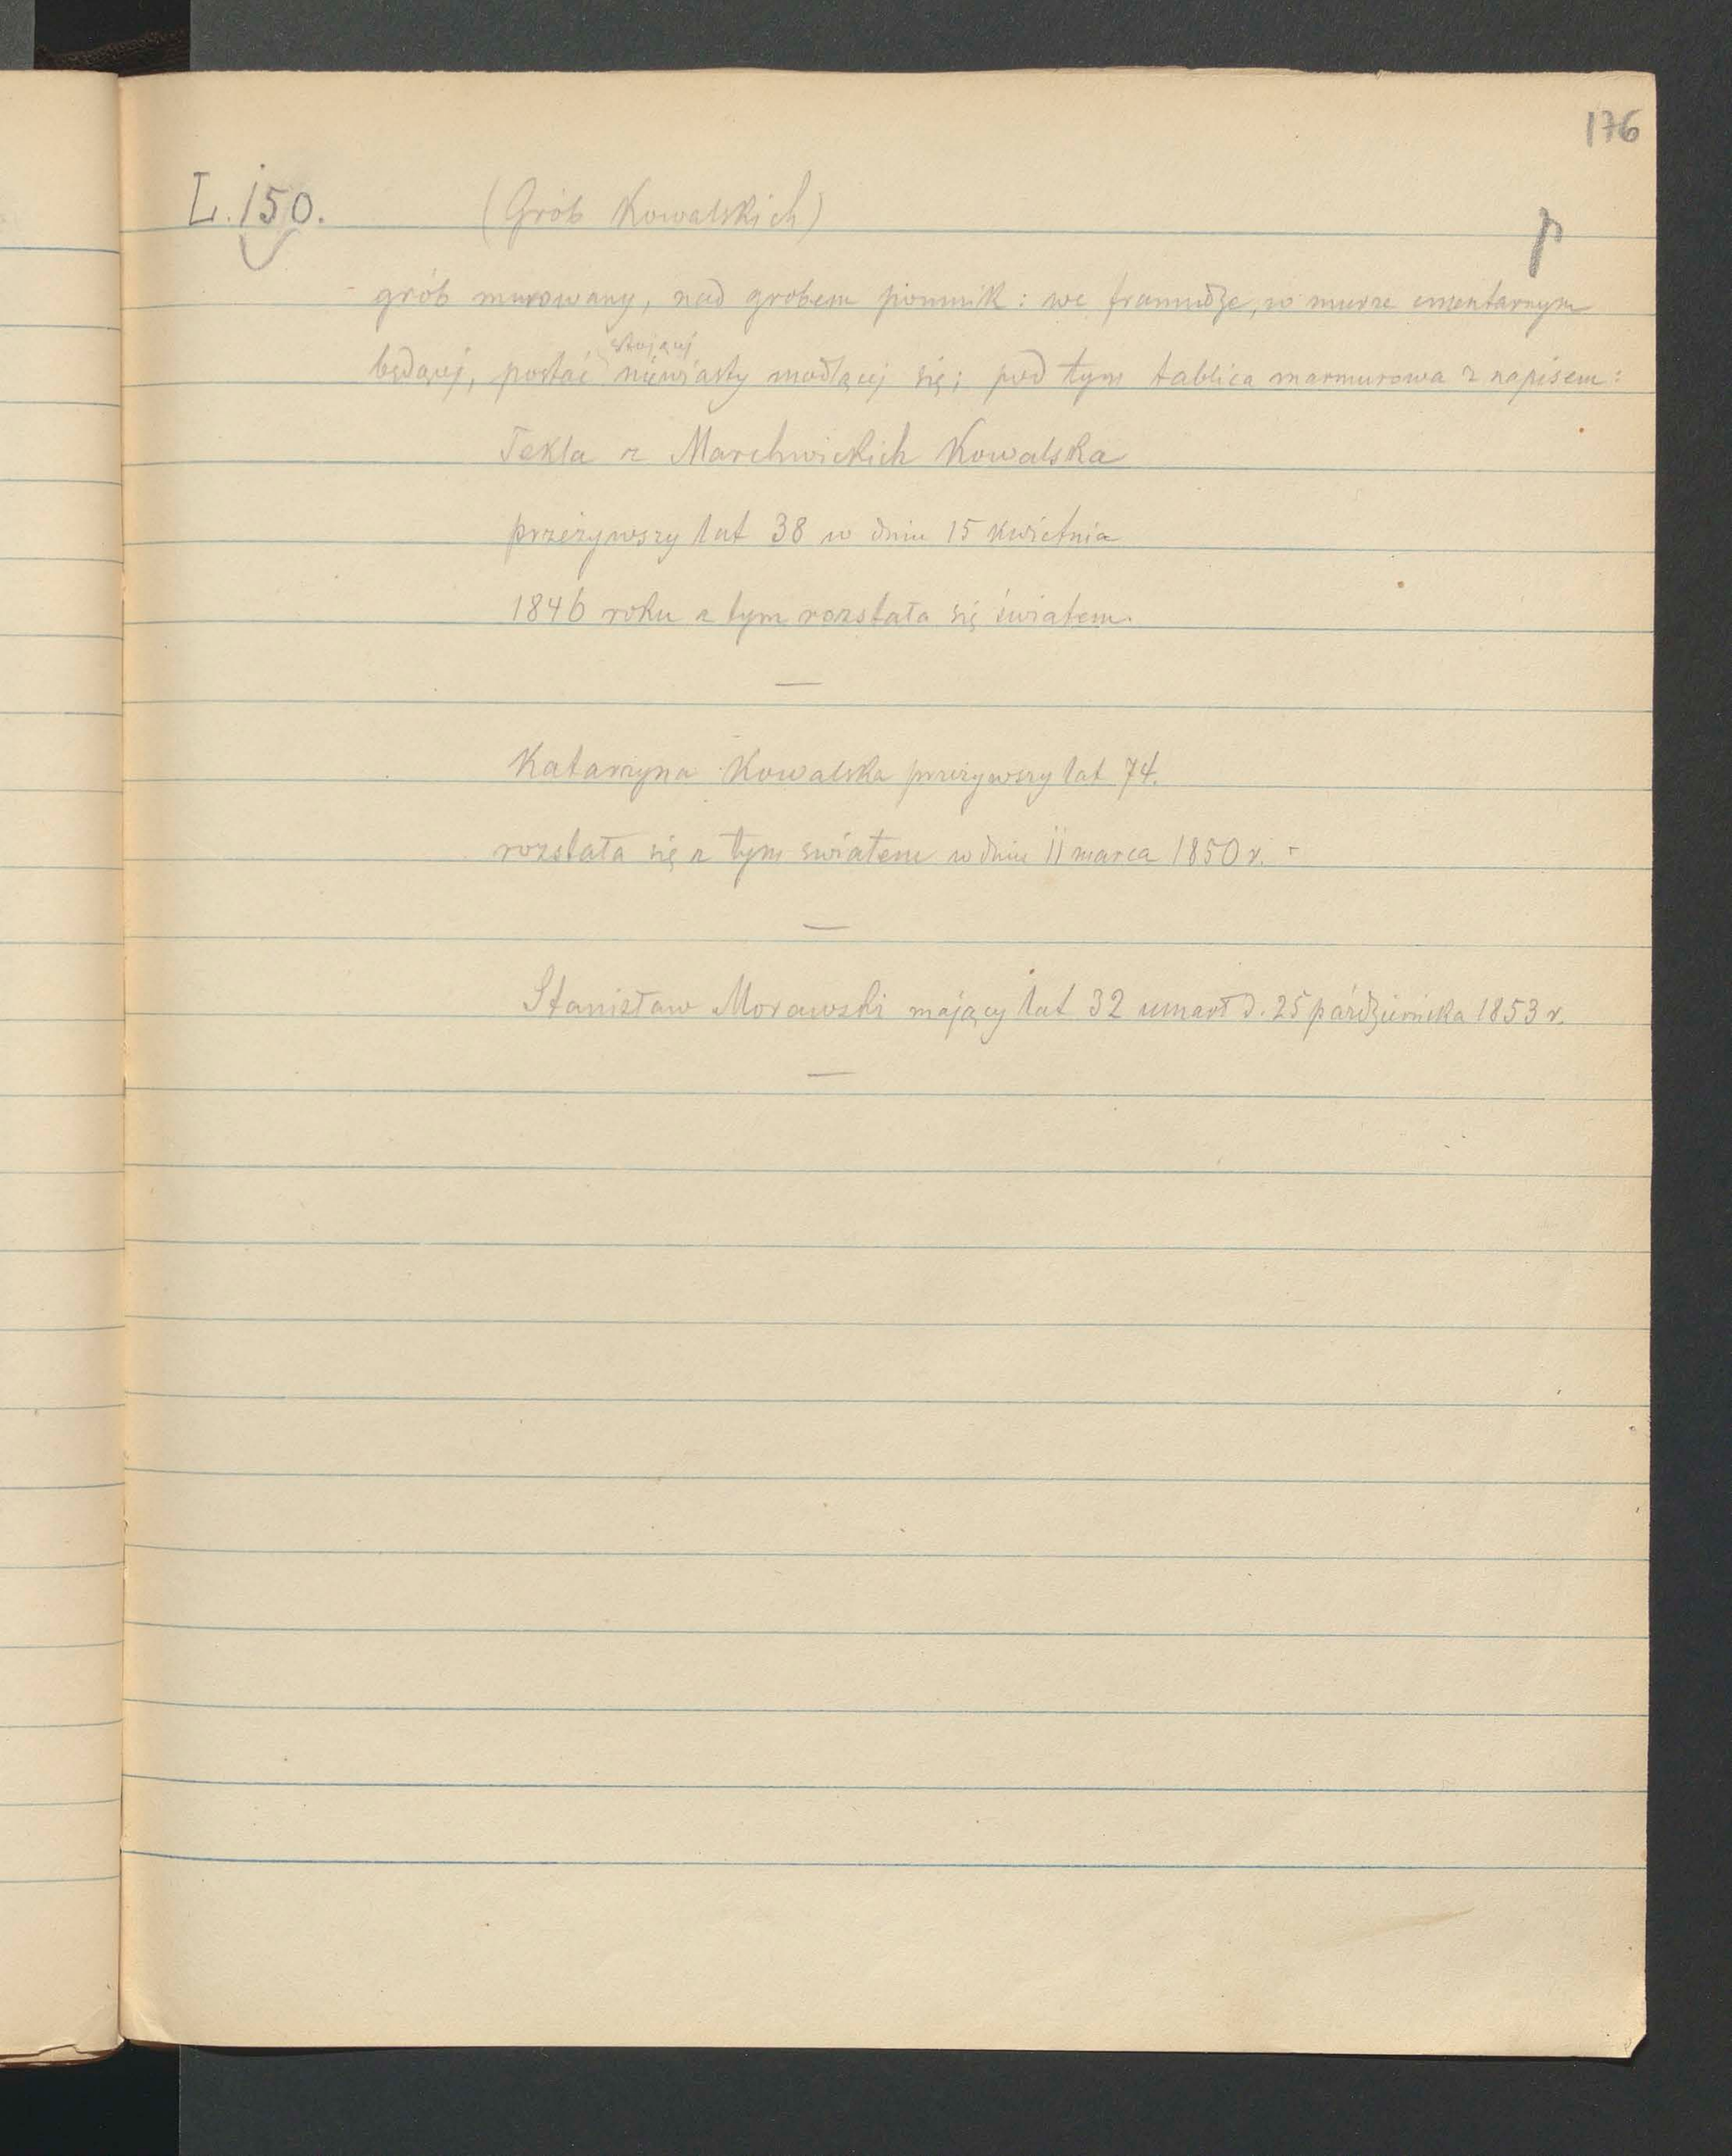 176
L. 150. (Grób Kowalskich)
p
grób murowany, nad grobem pomnik: we framudze, w murze cmentarnym
stojącej
będącej, postać niewiasty modlącej się; pod tym tablica marmurowa z napisem:
Tekla z Marchwickich Kowalska
przeżywszy lat 38 w dniu 15 kwietnia
1846 roku z tym rozstała się światem.
—
Katarzyna Kowalska przeżywszy lat 74.
rozstała się z tym światem w dniu 11 marca 1850 r. -
—
Stanisław Morawski mający lat 32 umarł d. 25 października 1853 r.
—